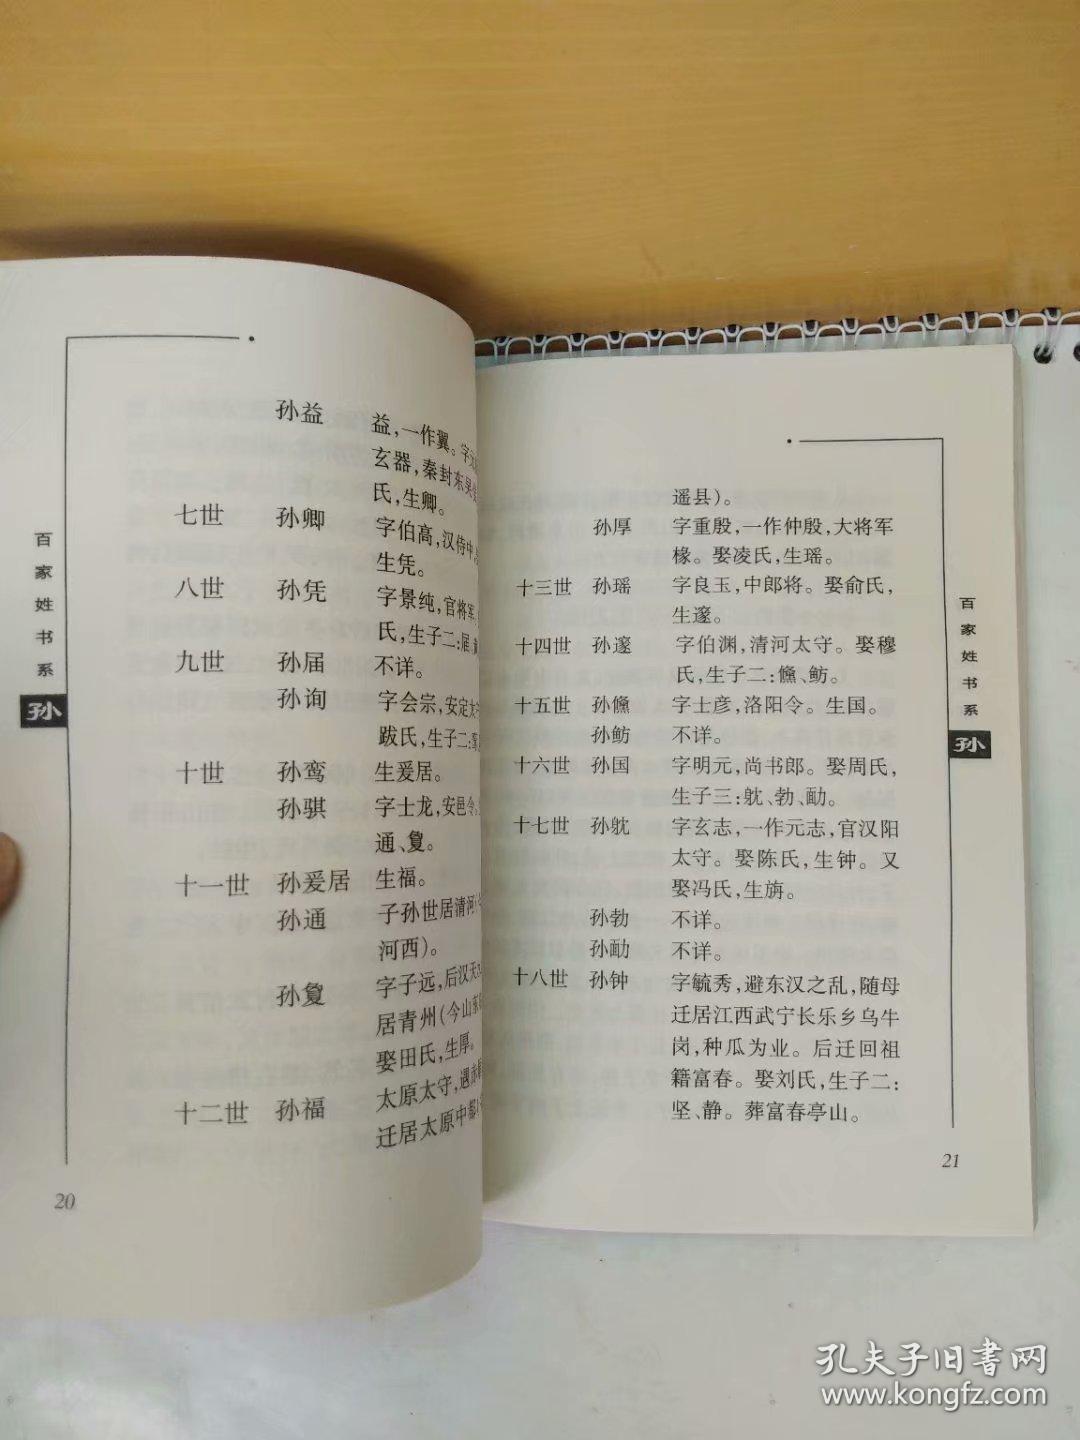 百家姓书系
孙
孙益 益，一作翼。字元
玄器，秦封东吴
氏，生卿。
七世 孙卿 字伯高，汉侍中，
生凭。
八世 孙凭 字景纯，官将军，
氏，生子二：届、
九世 孙届 不详。
孙询 字会宗，安定太
跋氏，生子二：鸾
十世 孙鸾 生爰居。
孙骐 字士龙，安邑令，
通、夐。
十一世 孙爰居 生福。
孙通 子孙世居清河
河西）。
孙夐 字子远，后汉天
居青州（今山东
娶田氏，生厚。
十二世 孙福 太原太守，遇赤
迁居太原中都
20
遥县）。
孙厚 字重殷，一作仲殷，大将军
椽。娶凌氏，生瑶。
十三世 孙瑶 字良玉，中郎将。娶俞氏，
生邃。
十四世 孙邃 字伯渊，清河太守。娶穆
氏，生子二：儵、鲂。
十五世 孙儵 字士彦，洛阳令。生国。
孙鲂 不详。
十六世 孙国 字明元，尚书郎。娶周氏，
生子三：躭、勃、勔。
十七世 孙躭 字玄志，一作元志，官汉阳
太守。娶陈氏，生钟。又
娶冯氏，生旃。
孙勃 不详。
孙勔 不详。
十八世 孙钟 字毓秀，避东汉之乱，随母
迁居江西武宁长乐乡乌牛
岗，种瓜为业。后迁回祖
籍富春。娶刘氏，生子二：
坚、静。葬富春亭山。
百家姓书系
孙
21
孔夫子旧書网
www.kongfz.com